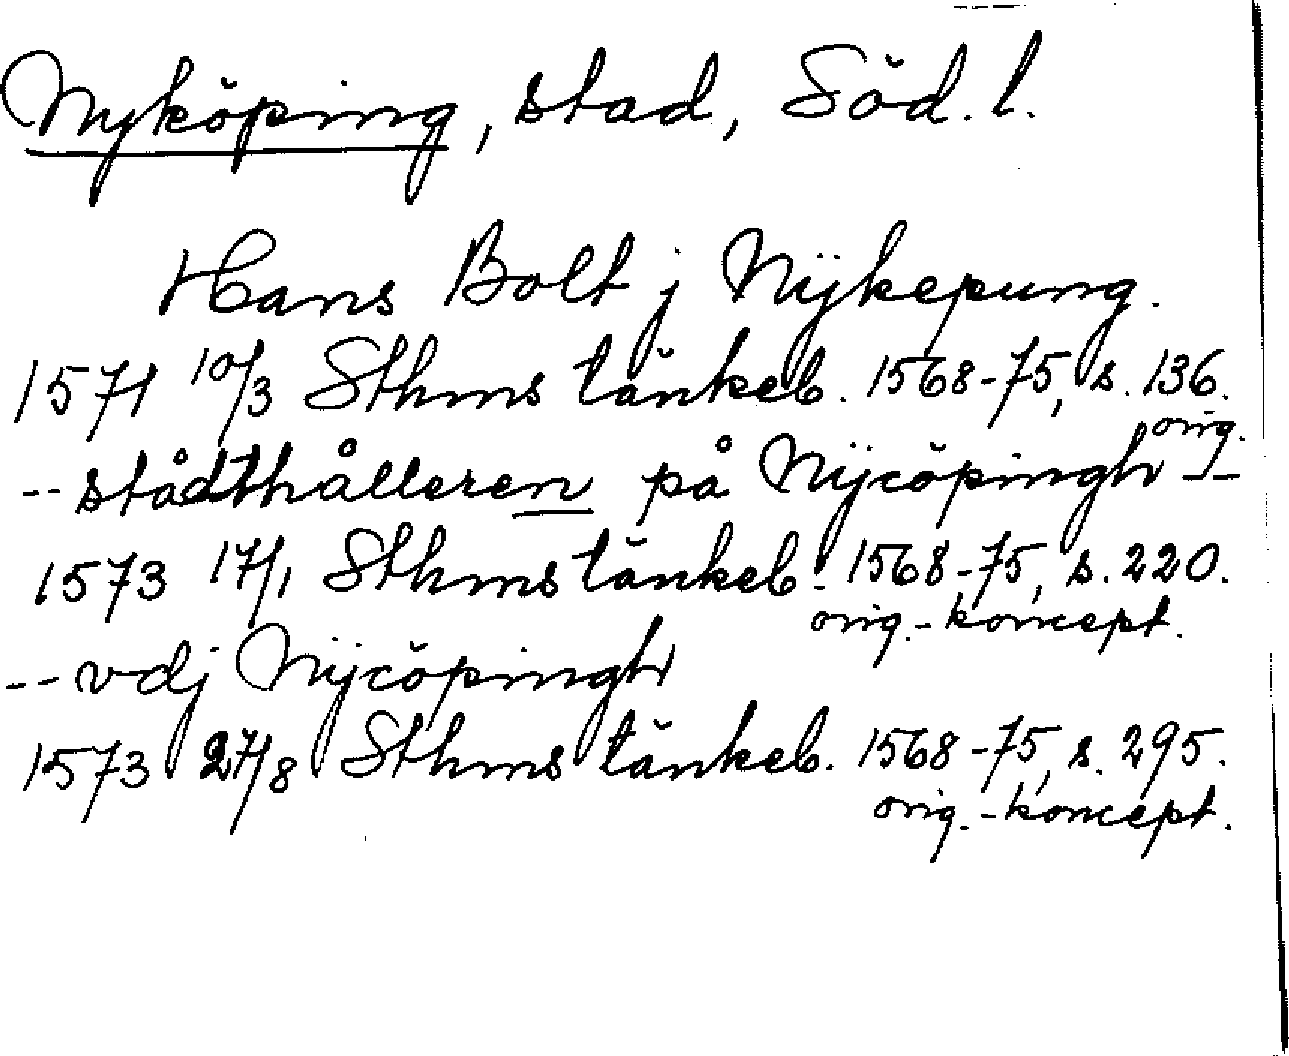 Nyköping, stad, Söd. l.
Hans Bolt j Nÿkepung.
1571 10/3 Sthms tänkeb. 1568-75, s. 136.
orig.
-- stådthålleren på Nÿcöpingh --
1573 17/1 Sthms tänkeb. 1568-75, s. 220.
orig.-koncept.
-- vdj Nÿcöpingh
1573 27/8 Sthms tänkeb. 1568-75, s. 295.
orig.-koncept.